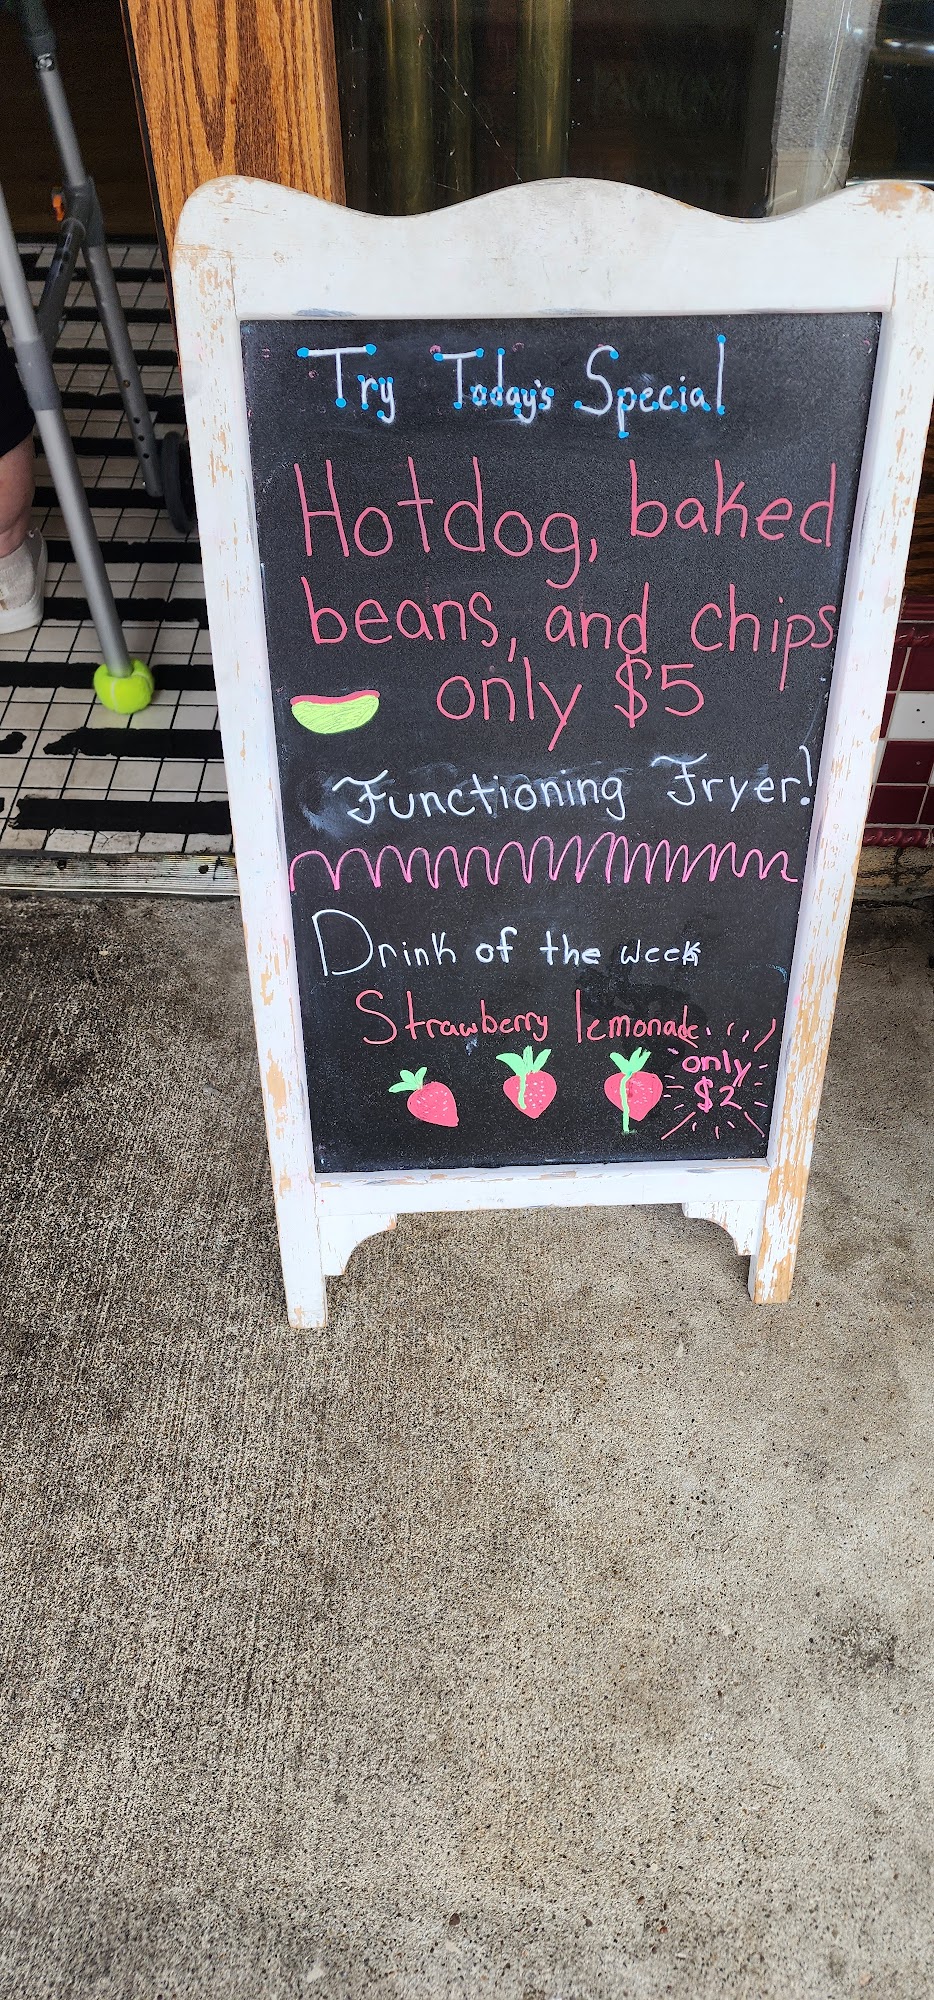 Try Today's Special
Hotdog, baked
beans, and chips
only $5
Functioning Fryer!
Drink of the week
Strawberry lemonade
only
$2